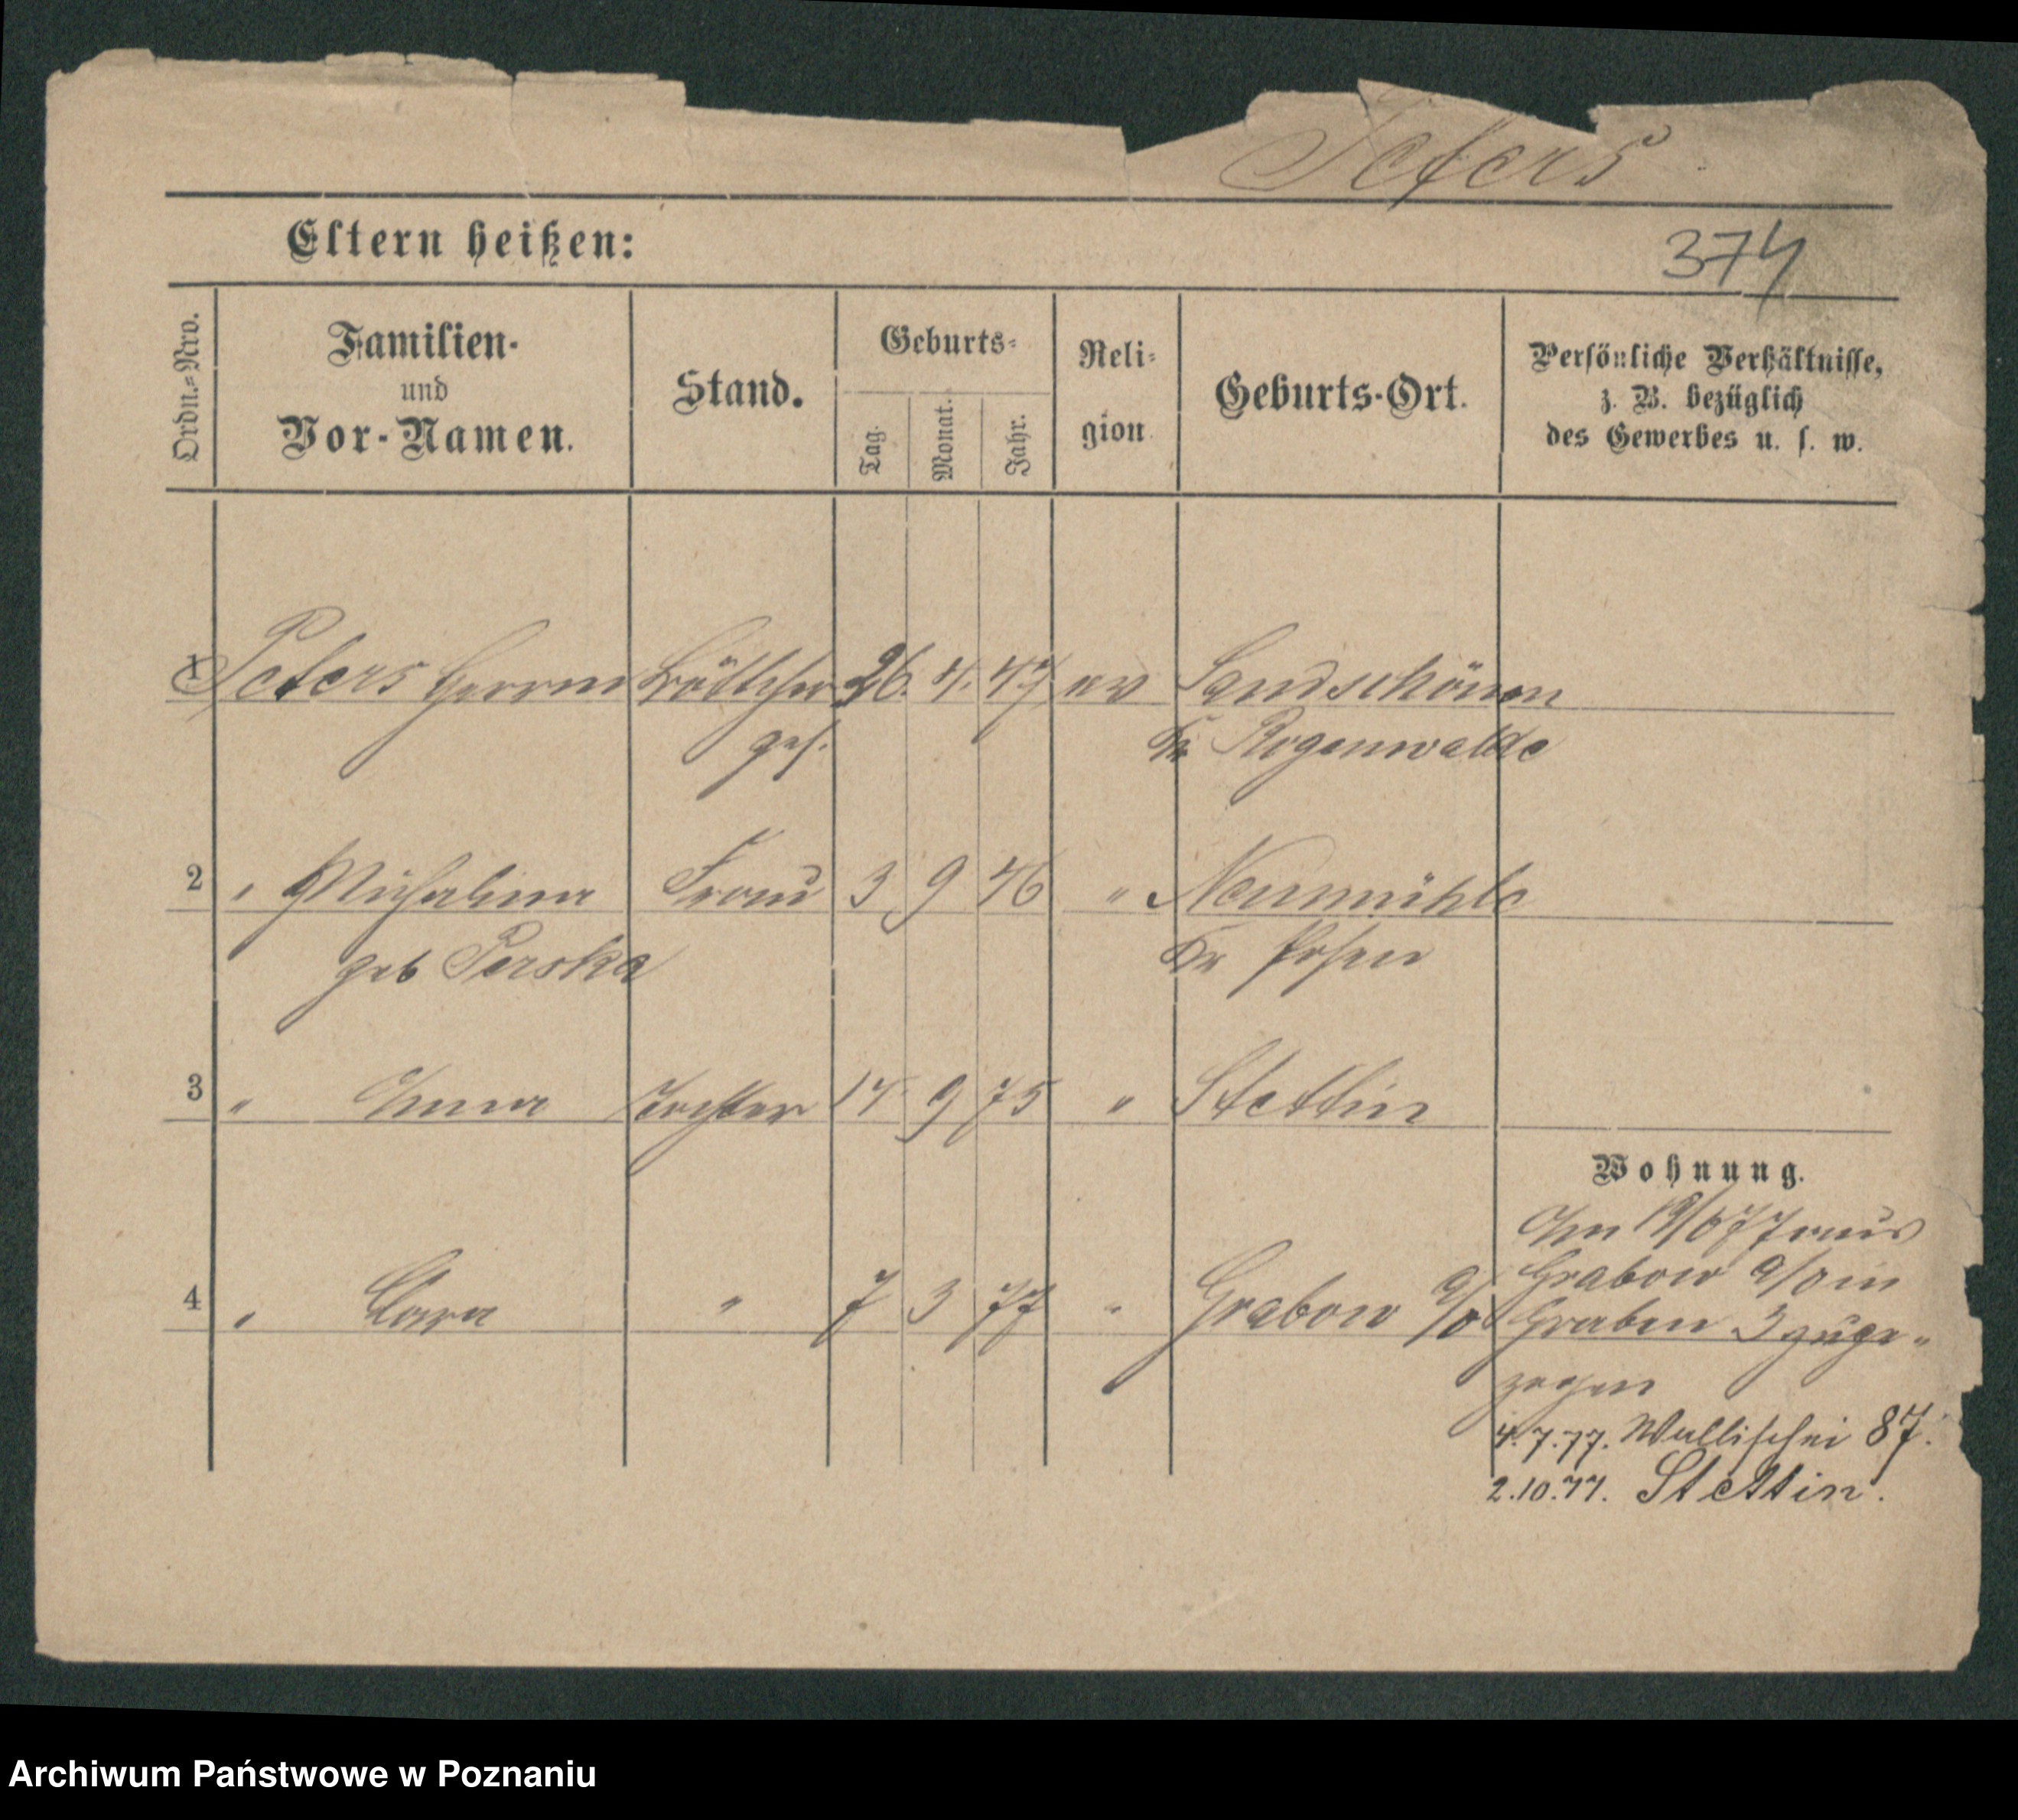 Peters
Eltern heißen:
374
Ordn.-Nro.
Familien-
und
Vor-Namen.
Stand.
Geburts-
Tag.
Monat.
Jahr.
Reli-
gion
Geburts-Ort.
Persönliche Verhältnisse,
z. B. bezüglich
des Gewerbes u. s. w.
1 Peters Herrm Böttcher 26. 4. 47 ev Sandschönen
ges. Kr Regenwalde
2 " Michalina Frau 3 9 46 " Neumühle
geb Perska Kr Posen
3 " Anna Tochter 14 9 75 " Stettin
4 " Clara " 7 3 77 " Grabow a/O
Wohnung.
Am 19/6 77 aus
Grabow a/O in
Graben 3 zuge-
zogen
4.7.77. Wallischei 87.
2.10.77. Stettin.
Archiwum Państwowe w Poznaniu